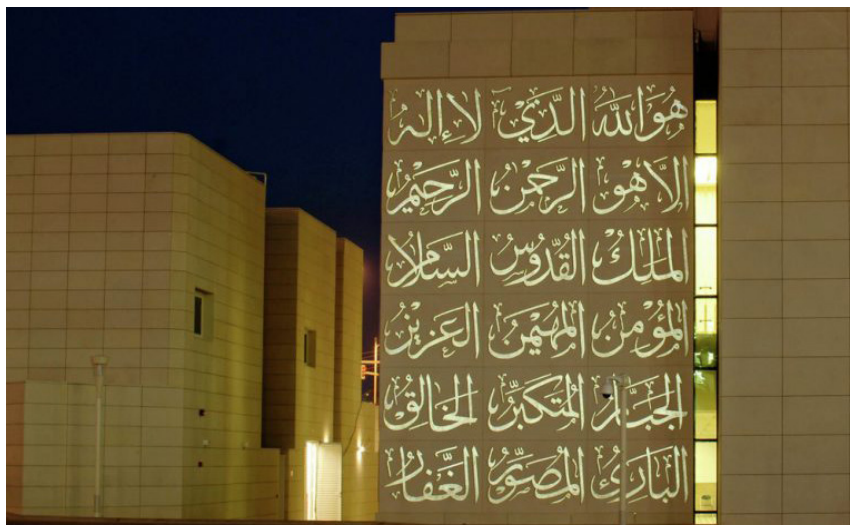 هُوَ اللّٰهُ الَّذِي لَا إِلٰهَ
إِلَّا هُوَ الرَّحْمٰنُ الرَّحِيمُ
الْمَلِكُ الْقُدُّوسُ السَّلَامُ
الْمُؤْمِنُ الْمُهَيْمِنُ الْعَزِيزُ
الْجَبَّارُ الْمُتَكَبِّرُ الْخَالِقُ
الْبَارِئُ الْمُصَوِّرُ الْغَفَّارُ